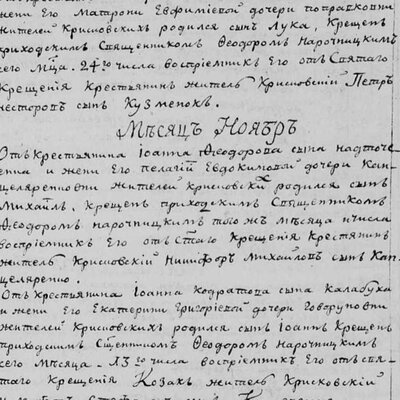 жени Его Матрони Евфимiевой дочери
жителей Крисковскихъ родился сынъ Лука, Крещенъ
приходскимъ Священникомъ Ѳеодоромъ Нарочницкимъ
сего Мца. 24го числа воспрiемникъ Его отъ Святаго
Крещенiя Крестьянинъ житель Крисковскiй Петръ
несторовъ сынъ Кузменокъ.
Мѣсяцъ Ноябръ
Отъ Крестьянина Iоанна Ѳеодорова сына
и жени Его Пелагiи Евдокимовой дочери Кан-
целяренковни жителей Крисковскихъ родился сынъ
Михаилъ, Крещенъ приходскимъ Священникомъ
Ѳеодоромъ нарочницкимъ того жъ мѣсяца и числа
воспрiемникъ Его отъ Стаго Крещенiя Крестянинъ
житель Крисковскiй Никифоръ Михайловъ сынъ Кан-
целяренко.
Отъ Крестьянина Iоанна Кодратова сына Калабухи
и жени Его Екатерини Григорiевой дочери
жителей Крисковскихъ родился сынъ Iоаннъ Крещенъ
приходскимъ Сщенникомъ Ѳеодоромъ Нарочницкимъ
сего Мѣсяца. 13го числа воспрiемникъ Его отъ Свя-
таго Крещенiя Козакъ житель Крисковскiй